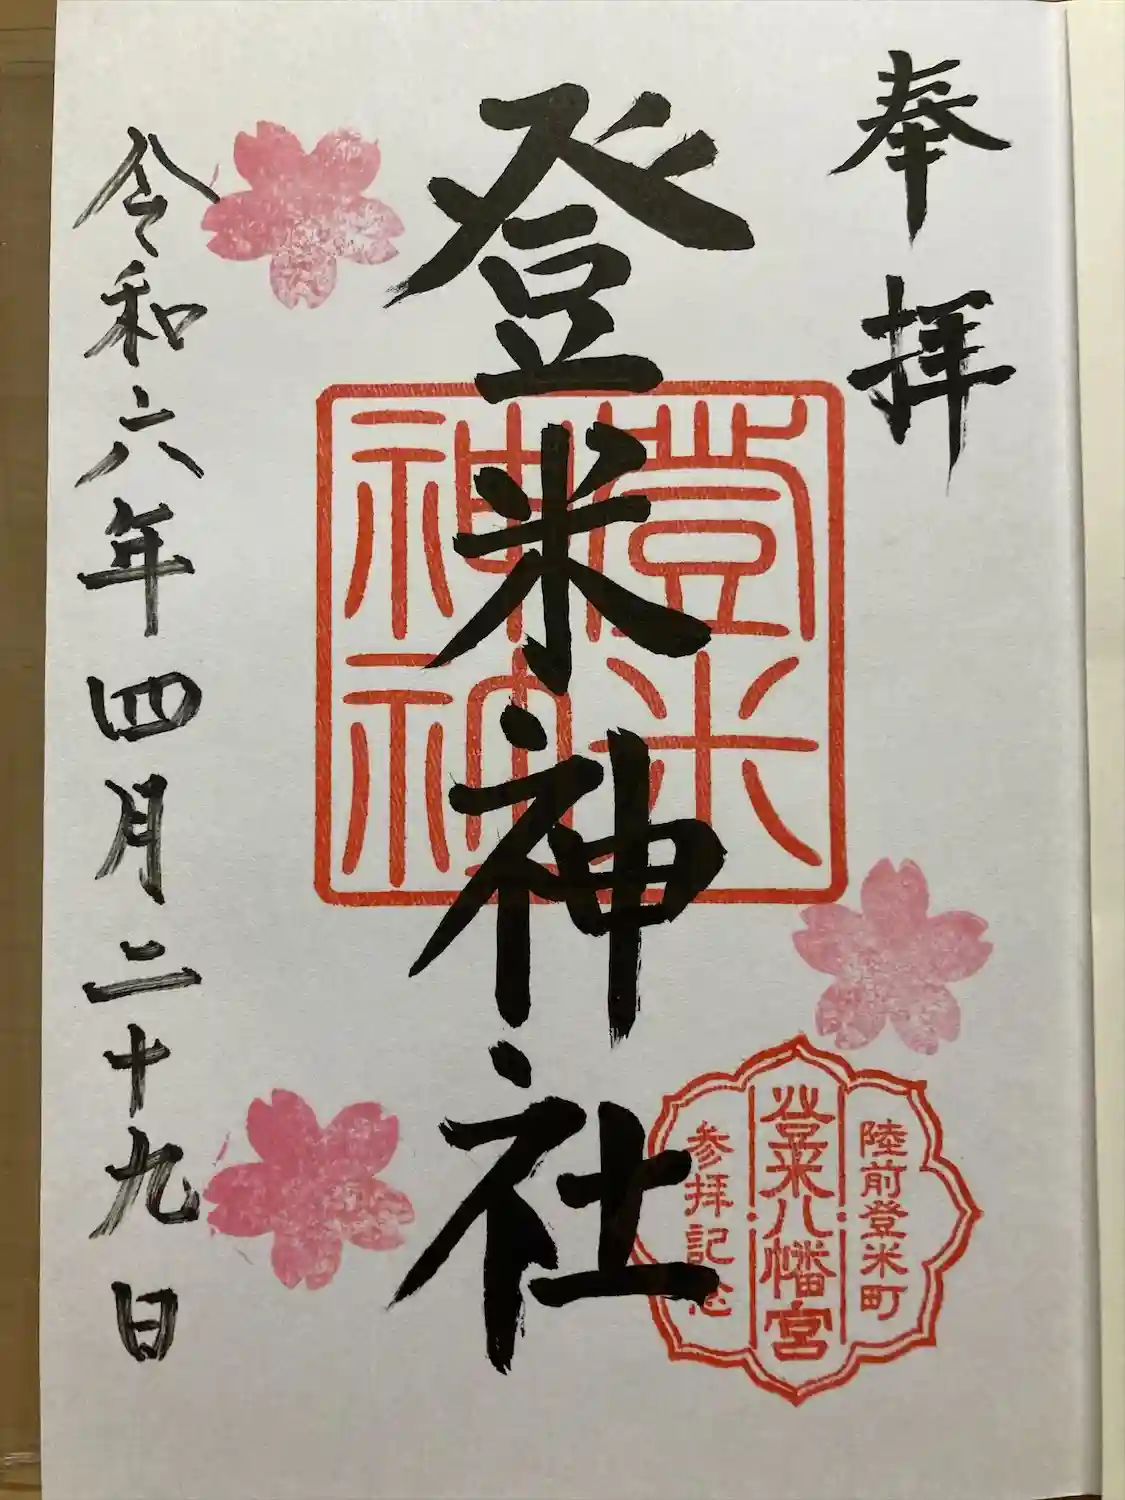 奉拝
登米神社
令和六年四月二十九日
登米
神社
陸前登米町
登米八幡宮
参拝記念